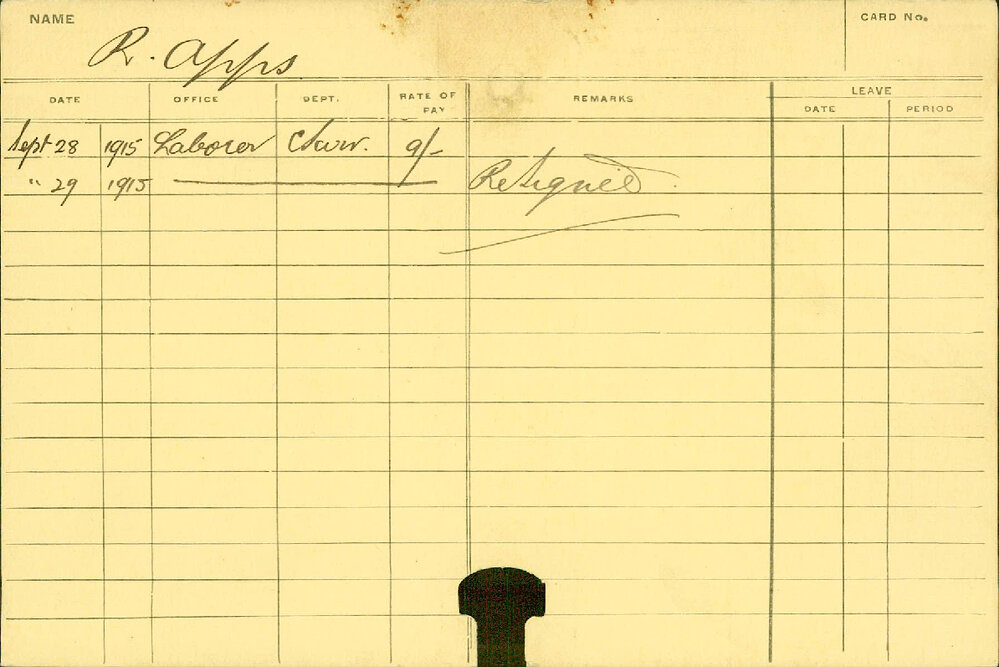 NAME
CARD No.
R. Apps
DATE OFFICE DEPT. RATE OF PAY REMARKS LEAVE
DATE PERIOD
Sept 28 1915 Laborer 9/-
" 29 1915 Resigned